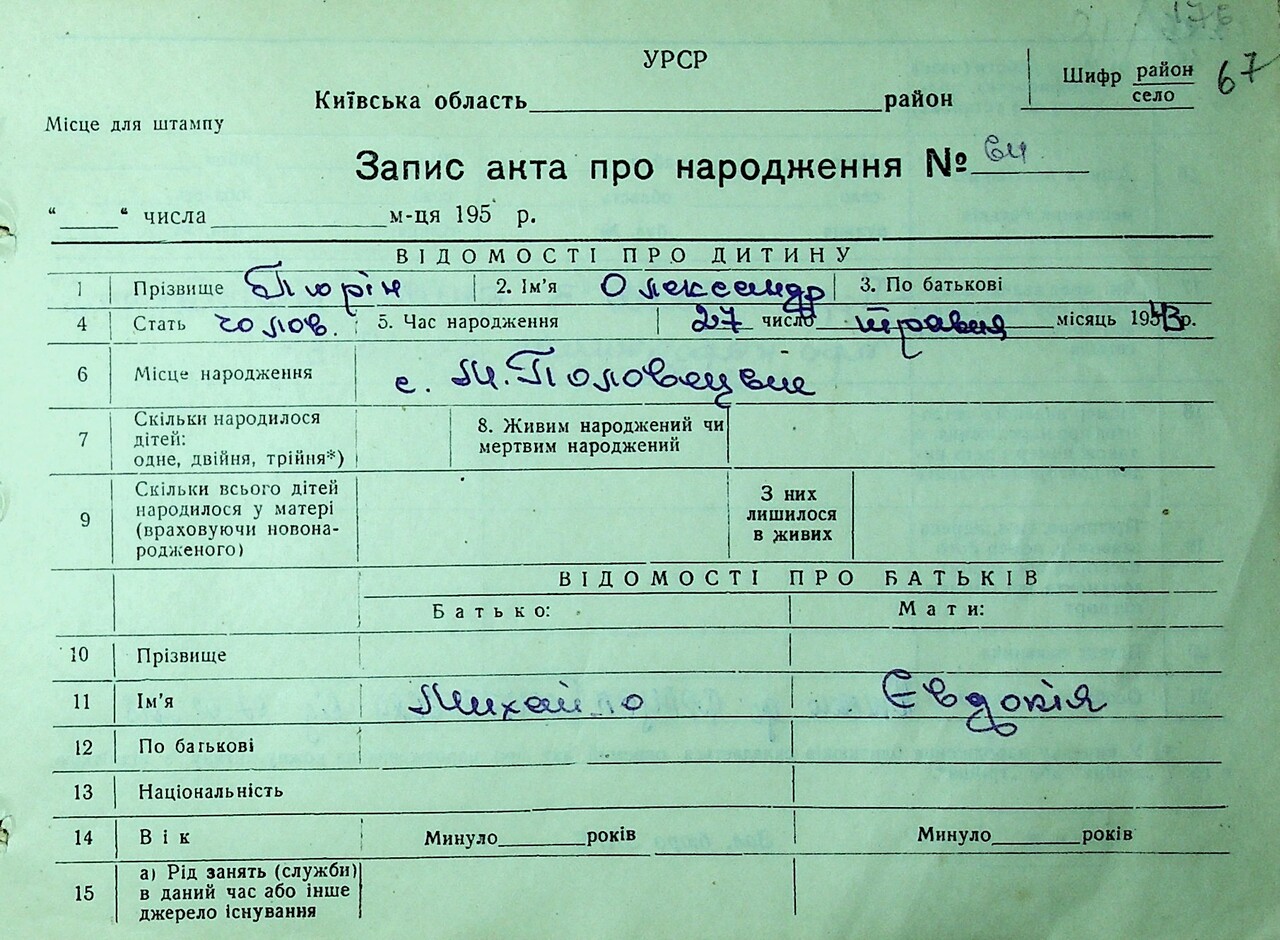 УРСР
Київська область район
Шифр район
село
67
Місце для штампу
Запис акта про народження №
“ “ числа м-ця 195 р.
ВІДОМОСТІ ПРО ДИТИНУ
1 Прізвище Тюрін 2. Ім'я Олександр 3. По батькові
4 Стать чолов. 5. Час народження 27 число травня місяць 1943 р.
6 Місце народження с. М. Половецьке
7 Скільки народилося
дітей:
одне, двійня, трійня*)
8. Живим народжений чи
мертвим народжений
9 Скільки всього дітей
народилося у матері
(враховуючи новона-
родженого)
З них
лишилося
в живих
ВІДОМОСТІ ПРО БАТЬКІВ
Батько: Мати:
10 Прізвище
11 Ім'я Михайло Євдокія
12 По батькові
13 Національність
14 Вік Минуло років Минуло років
15 а) Рід занять (служби)
в даний час або інше
джерело існування